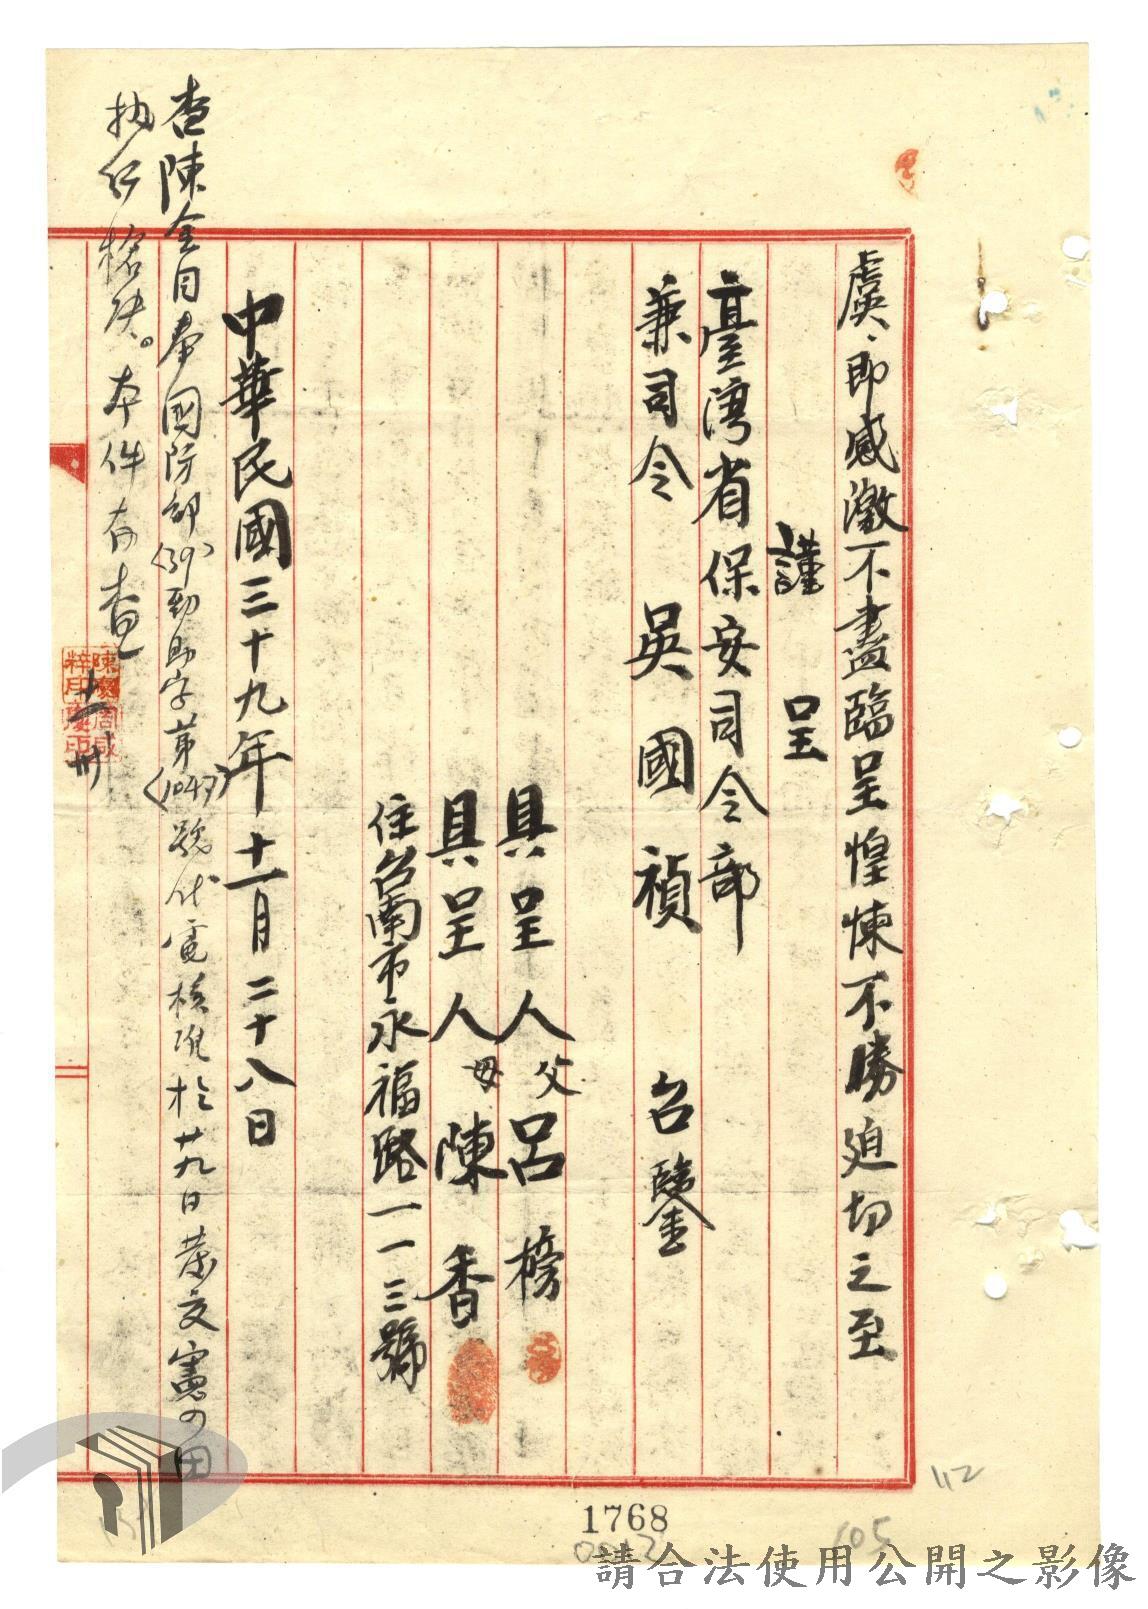 虞、即感激不盡臨呈惶悚不勝迫切之至
謹 呈
臺灣省保安司令部
兼司令 吳 國 禎 台鑒
具呈人 父 呂 榜
具呈人 母 陳 香
住台南市永福路一一三號
中華民國三十九年十一月二十八日
查陳金目奉國防部(39)勁助字第(1047)號代電核准於廿九日發交憲四團
執行槍決。本件存查
十一 卅
1768
112
105
請合法使用公開之影像